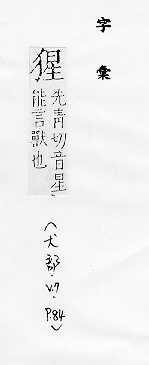 字彙
猩
先青切音星
能言獸也
(犬部, V.7, P.84)